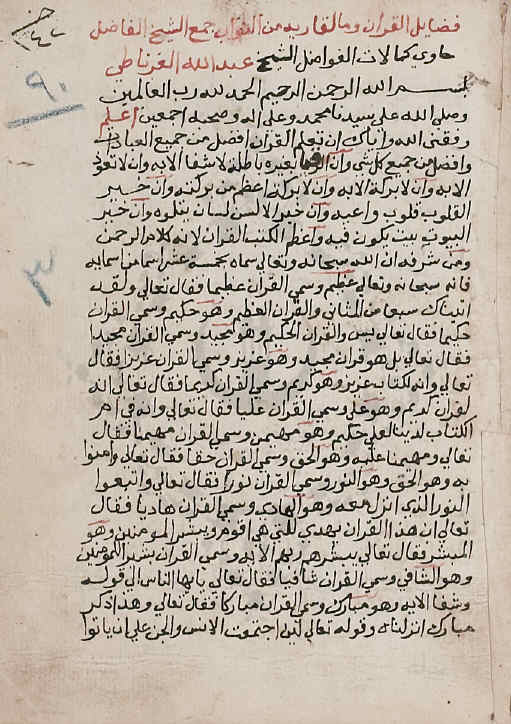 فضايل القران وما لقاريه من الثواب جمع الشيخ الفاضل
حاوي كمالات الفواضل الشيخ عبد الله الغرناطي
بسم الله الرحمن الرحيم الحمد لله رب العالمين
وصلى الله على سيدنا محمد وعلى اله وصحبه اجمعين اعلم
وفقني الله واياك ان تعلم القران افضل من جميع العبادات
وافضل من جميع كل شي وان بغيره باطلة لا شفا الا به وان لا تعوذ
الا به وان لا بركة الا به وان لا بركة اعظم من بركته وان خير
القلوب قلوب واعيه وان خير الالسن لسان يتلوه وان خير
البيوت بيت يكون فيه واعظم الكتب القران لانه كلام الرحمن
ومن شرفه ان الله سبحانه وتعالى سماه بخمسة عشر اسما من اسمايه
فانه سبحانه وتعالى عظيم وسمي القران عظيما فقال تعالى ولقد
اتيناك سبعا من المثاني والقران العظيم وهو حكيم وسمي القران
حكيما فقال تعالى يس والقران الحكيم وهو مجيد وسمي القران مجيدا
فقال تعالى بل هو قران مجيد وهو عزيز وسمي القران عزيزا فقال
تعالى وانه لكتاب عزيز وهو كريم وسمي القران كريما فقال تعالى انه
لقران كريم وهو علي وسمي القران عليا فقال تعالى وانه في ام
الكتاب لدينا لعلي حكيم وهو مهيمن وسمي القران مهيمنا فقال
تعالى ومهيمنا عليه وهو الحق وسمي القران حقا فقال تعالى وامنوا
به وهو الحق وهو النور وسمي القران نورا فقال تعالى واتبعوا
النور الذي انزل معه وهو الهادي وسمي القران هاديا فقال
تعالى ان هذا القران يهدي للتي هي اقوم ويبشر المومنين وهو
المبشر فقال تعالى يبشرهم ربهم الايه وسمي القران بشير المومنين
وهو الشافي وسمي القران شافيا فقال تعالى يا يها الناس الى قوله
وشفا الايه وهو مبارك وسمي القران مباركا فقال تعالى وهذا ذكر
مبارك انزلناه وقوله تعالى لين اجتمعت الانس والجن على ان ياتوا